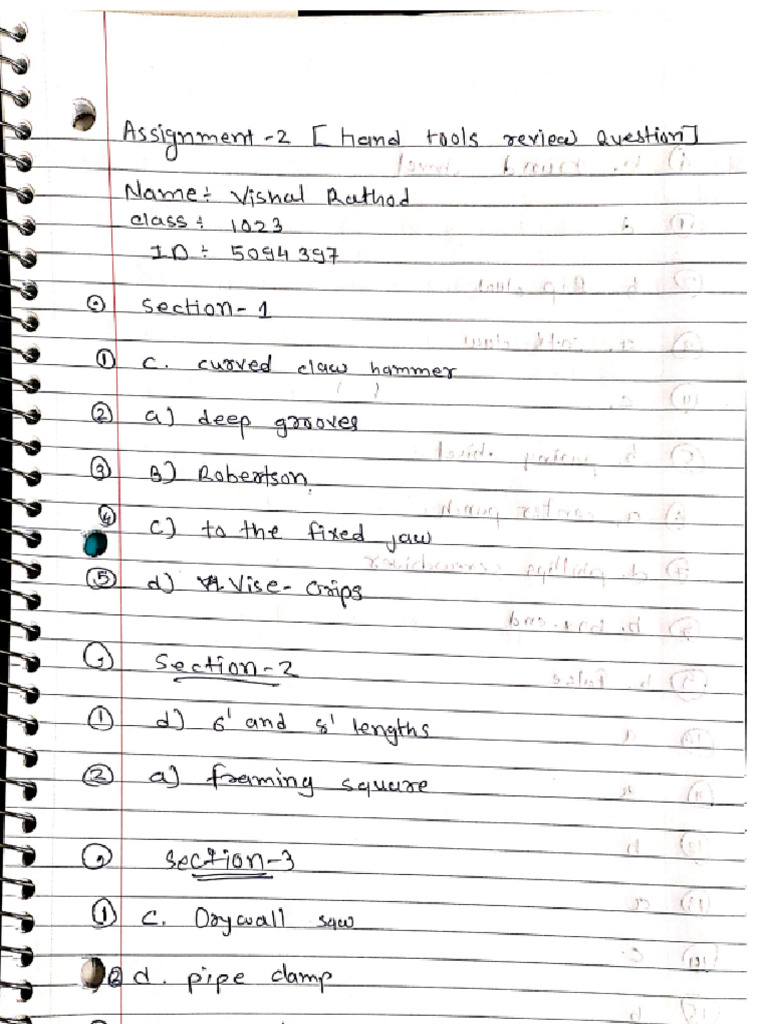 Assignment-2 [hand tools review Question]
Name: Vishal Rathod
class: 1023
ID: 5094397
section-1
① c. curved claw hammer
② a) deep grooves
③ B) Robertson
④ c) to the fixed jaw
⑤ d) Vise-Grips
Section-2
① d) 6' and 8' lengths
② a) framing square
section-3
① c. Drywall saw
② d. pipe clamp